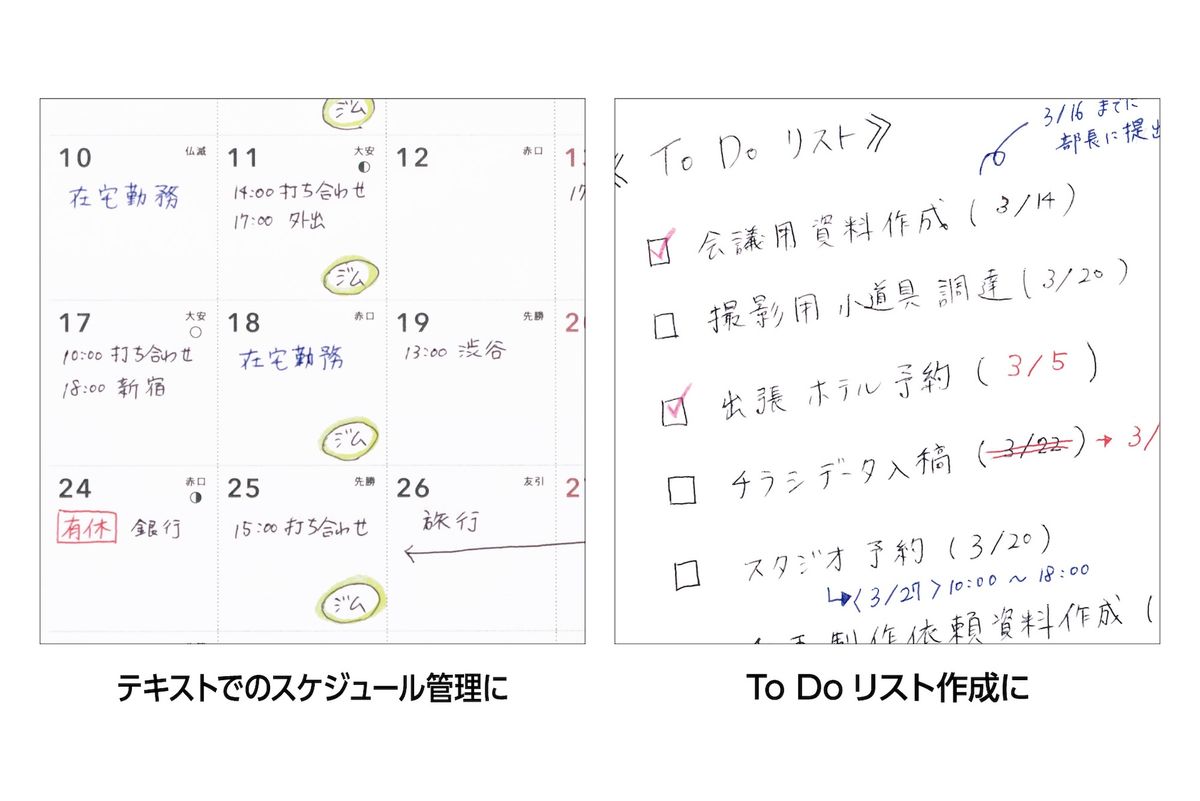 ジム
10 仏滅
在宅勤務
11 大安
14:00 打ち合わせ
17:00 外出
ジム
12 赤口
17 大安
10:00 打ち合わせ
18:00 新宿
18 赤口
在宅勤務
ジム
19 先勝
13:00 渋谷
24 赤口
有休 銀行
25 先勝
15:00 打ち合わせ
ジム
26 友引
旅行
テキストでのスケジュール管理に
3/16 までに
部長に提出
《 To Do リスト 》
会議用資料作成 (3/14)
撮影用小道具調達 (3/20)
出張ホテル予約 (3/5)
チラシデータ入稿 (3/22) → 3/
スタジオ予約 (3/20)
↳〈3/27〉10:00 〜 18:00
制作依頼資料作成 (
To Do リスト作成に